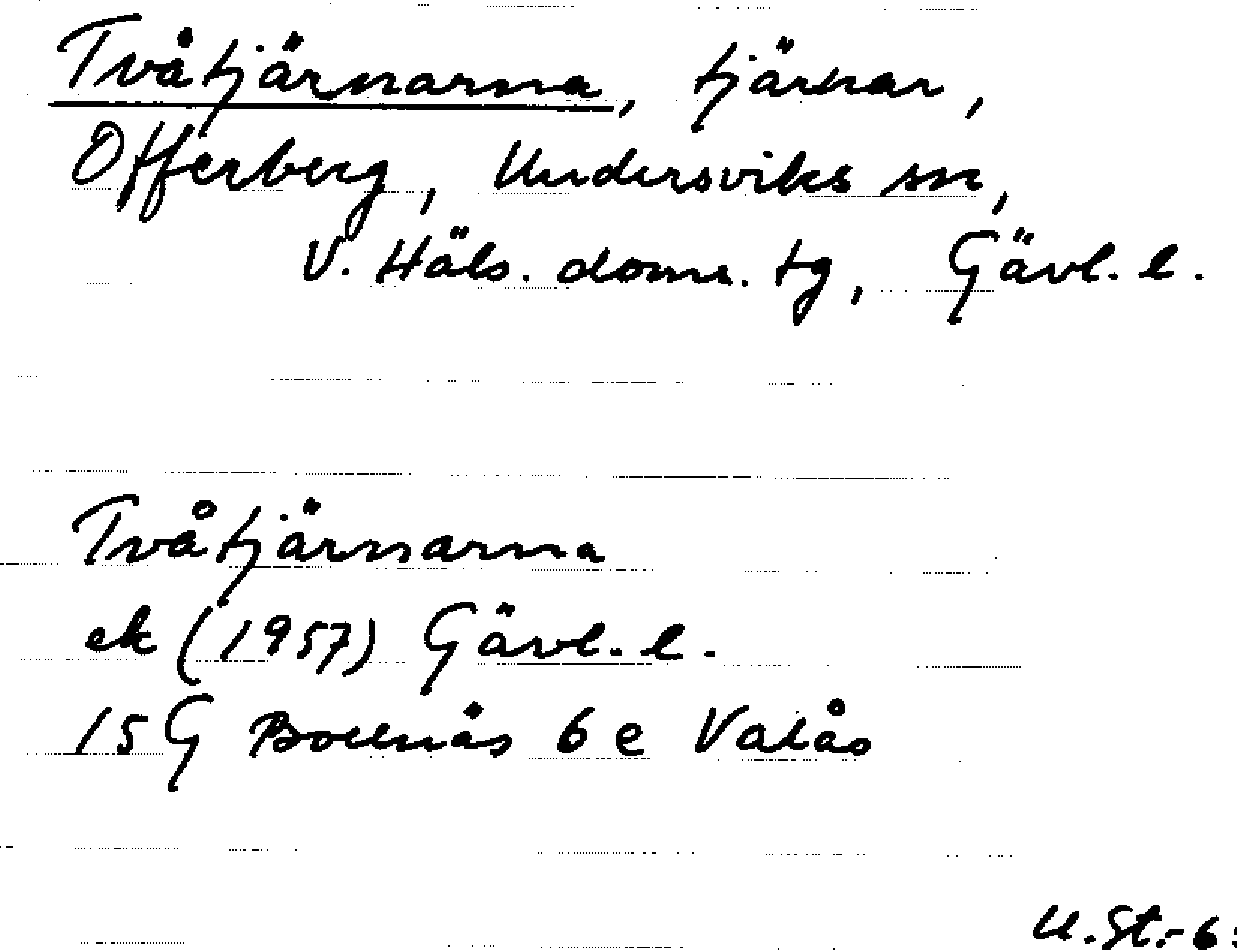 Tvåtjärnarna, tjärnar,
Offerberg, Undersviks sn,
V. Häls. doms. tg, Gävl. l.
Tvåtjärnarna
ek (1957) Gävl. l.
15G Bollnäs 6 e Valås
U.St.-6